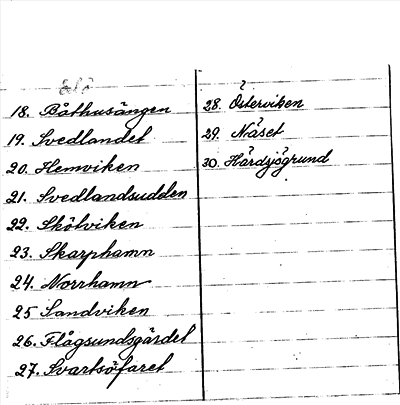 18. Båthusängen
19. Svedlandet
20. Hemviken
21. Svedlandsudden
22. Skölviken
23. Skarphamn
24. Norrhamn
25 Sandviken
26. Flågsundsgärdet
27. Svartsöfaret
28. Österviken
29. Näset
30. Hårdjsjögrund